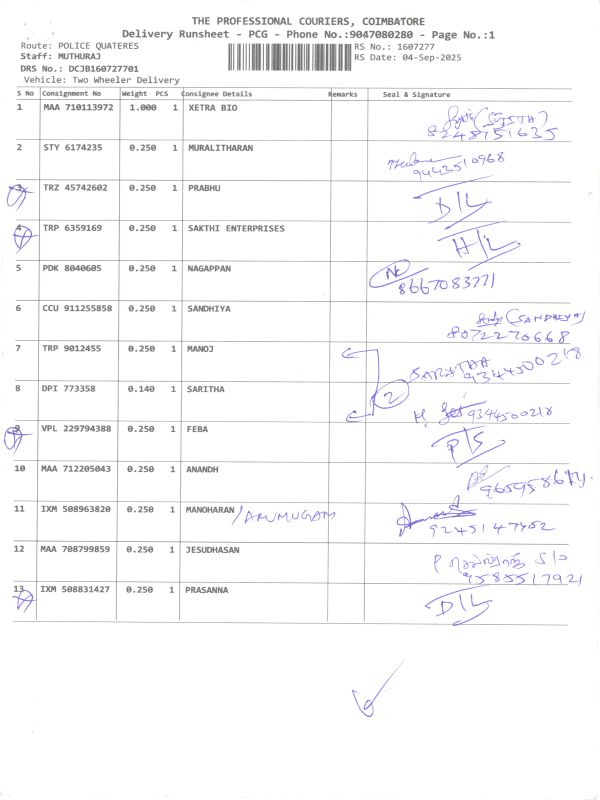 THE PROFESSIONAL COURIERS, COIMBATORE
Delivery Runsheet - PCG - Phone No.:9047080280 - Page No.:1
Route: POLICE QUATERES RS No.: 1607277
Staff: MUTHURAJ RS Date: 04-Sep-2025
DRS No.: DCJB160727701
Vehicle: Two Wheeler Delivery
S No Consignment No Weight PCS Consignee Details Remarks Seal & Signature
1 MAA 710113972 1.000 1 XETRA BIO (SUJITH)
8248151635
2 STY 6174235 0.250 1 MURALITHARAN
9443510968
3 TRZ 45742602 0.250 1 PRABHU D/L
4 TRP 6359169 0.250 1 SAKTHI ENTERPRISES H/L
5 PDK 8040605 0.250 1 NAGAPPAN
8667083771
6 CCU 911255858 0.250 1 SANDHIYA (SANDHIYA)
8072270668
7 TRP 9012455 0.250 1 MANOJ SARITHA
9344500218
8 DPI 773358 0.140 1 SARITHA 2 9344500218
9 VPL 229794388 0.250 1 FEBA P/S
10 MAA 712205043 0.250 1 ANANDH
11 IXM 508963820 0.250 1 MANOHARAN /ARUMUGAM
9245147402
12 MAA 708799859 0.250 1 JESUDHASAN S/o
9585517921
13 IXM 508831427 0.250 1 PRASANNA D/L